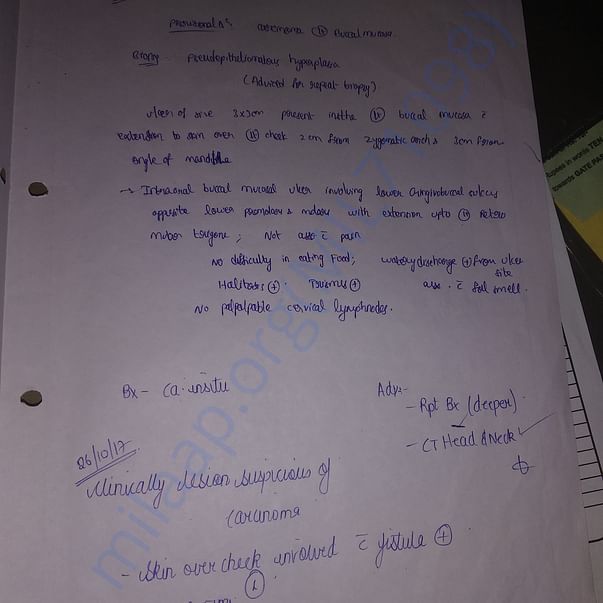 Provisional Δs carcinoma (L) Buccal mucosa.
Biopsy Pseudoepitheliomatous hyperplasia
(Advised for repeat biopsy)
ulcer of size 3x3cm present in the (L) buccal mucosa c̄
extension to skin over (L) cheek 2cm from zygomatic arch & 3cm from
angle of mandible
→ Intraoral buccal mucosal ulcer involving lower Gingivobuccal sulcus
opposite lower premolars & molars with extension upto (L) Retro
molar trigone ; Not asso c̄ pain
No difficulty in eating Food; watery discharge (+) from ulcer
site
Halitosis (+). Trismus (+) ass. c̄ foul smell.
No palpable cervical lymphnodes.
Bx - Ca insitu
Adv:-
- Rpt Bx (deeper)
- CT Head & Neck
26/10/17
Clinically lesion suspicious of
Carcinoma
- Skin over cheek involved c̄ fistula (+)
(L)
milaap.org
upees in words TEN
towards GATE PAS